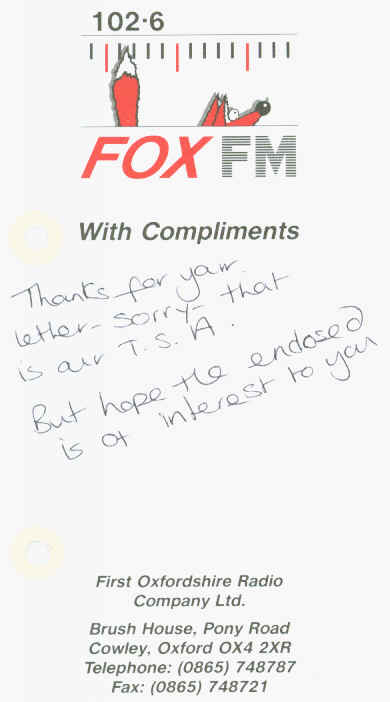 102·6
FOX FM
With Compliments
Thanks for your
letter - sorry - that
is our T.S.A.
But hope the enclosed
is of interest to you
First Oxfordshire Radio
Company Ltd.
Brush House, Pony Road
Cowley, Oxford OX4 2XR
Telephone: (0865) 748787
Fax: (0865) 748721